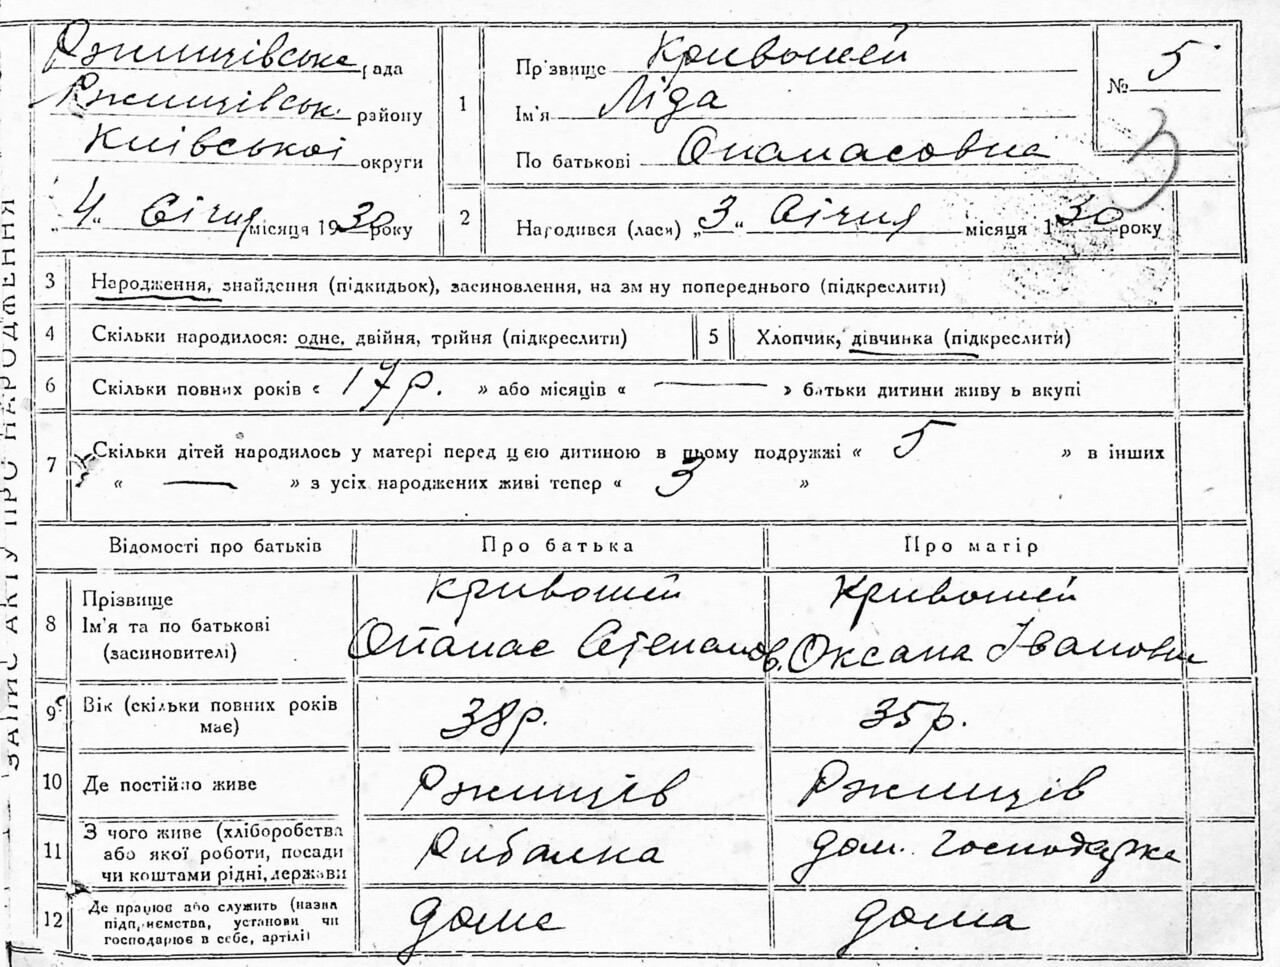 ЗАПИС АКТУ ПРО НАРОДЖЕННЯ
Ржищівська рада
Ржищівськ. району
Київської округи
„4“ Січня місяця 1930 року
1
Прізвище Кривошей
Ім'я Ліда
По батькові Опанасовна
№ 5
3
2
Народився (лася) „3“ Січня місяця 1930 року
3 Народження, знайдення (підкидьок), засиновлення, на зміну попереднього (підкреслити)
4 Скільки народилося: одне, двійня, трійня (підкреслити)
5 Хлопчик, дівчинка (підкреслити)
6 Скільки повних років « 17р. » або місяців « — » батьки дитини живуть вкупі
7 Скільки дітей народилось у матері перед цією дитиною в цьому подружжі « 5 » в інших
« — » з усіх народжених живі тепер « 3 »
Відомості про батьків Про батька Про матір
8 Прізвище
Ім'я та по батькові
(засиновителі)
Кривошей
Опанас Степанов.
Кривошей
Оксана Івановна
9 Вік (скільки повних років
має)
38р. 35р.
10 Де постійно живе Ржищів Ржищів
11 З чого живе (хліборобства
або якої роботи, посади
чи коштами рідні, держави
Рибалка дом. господарка
12 Де працює або служить (назва
підприємства, установи чи
господарює в себе, артілі)
дома дома